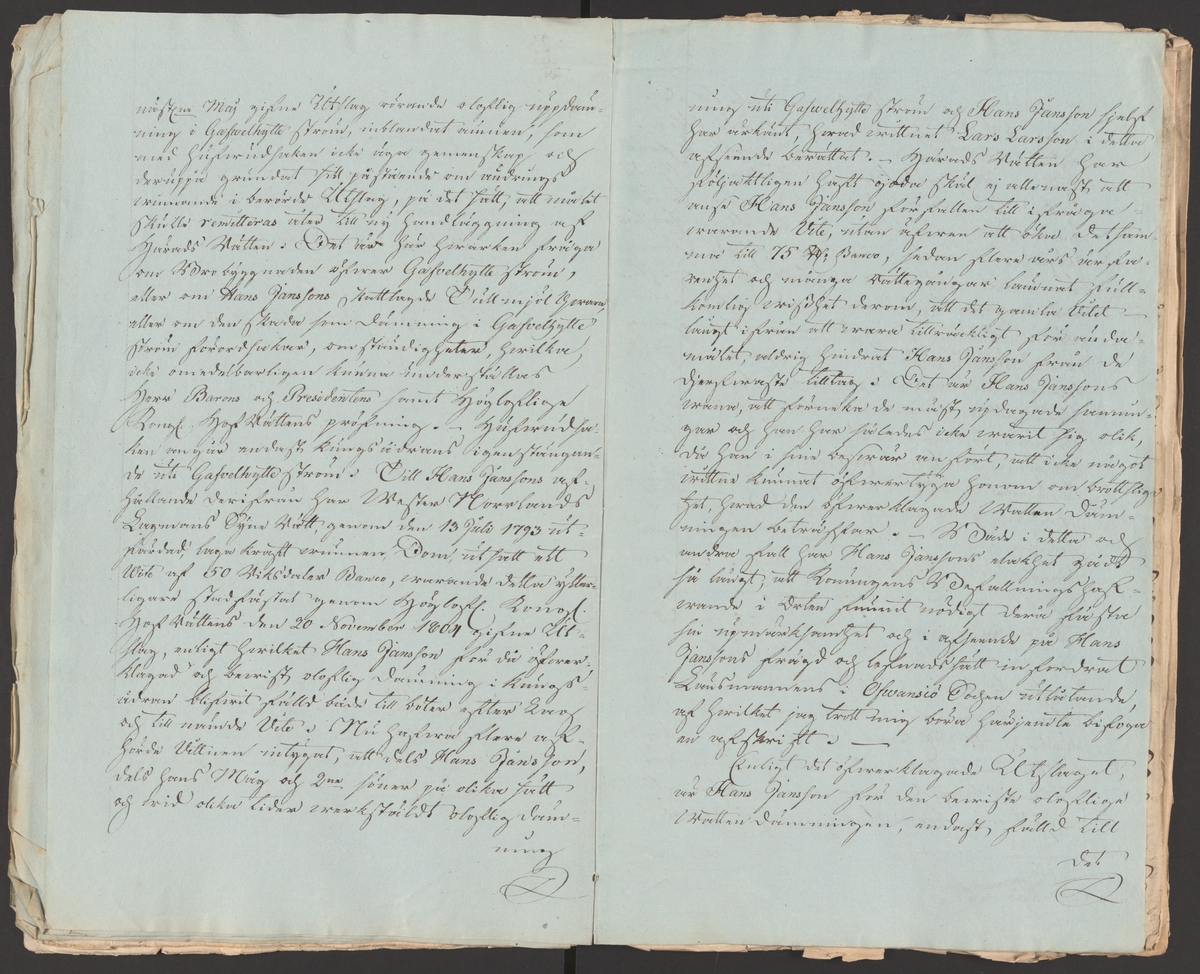 nästl:ne Maj gifne Utslag rörande oloflig uppdäm-
ning i Gafvelhytte ström, inblandat ämnen, som
med hufvudsaken icke äga gemenskap och
deruppå grundat sitt påstående om ändrings
vinnande i berörde Utslag, på det sätt, att målet
skulle remitteras åter till ny handläggning af
Härads Rätten. Det är här hvarken fråga
om Brobyggnaden öfwer Gafvelhytte ström,
eller om Hans Janssons skattlagde Tullmjöl Qvarn,
eller om den skada som dämning i Gafvelhytte
ström förordsakar, omständigheter, hvilka
icke omedelbarligen kunna underställas
Herr Barons och Presidentens samt Högloflige
Kongl. Hof Rättens pröfning. – Hufvudsa-
ken angår endast Kungsådrans igenstängan-
de uti Gafvelhytte ström. Till Hans Janssons af-
hållande derifrån har Wester Norrlands
Lagmans Syne Rätt, genom den 13 Juli 1793 ut-
färdad, laga kraft vunnen Dom, utsatt ett
Wite af 50 Riksdaler Banco, warande detta ytter-
ligare stadfästat genom Höglofl. Kongl.
Hof Rättens den 20 November 1804 gifne Ut-
slag, enligt hvilket Hans Jansson för då öfver-
klagad och bevist oloflig dämning i Kungs-
ådran blifvit fälld både till böter efter Lag
och till nämde Vite. Nu hafva flere af-
hörde Vittnen intygat, att dels Hans Jansson,
dels hans Måg och 2ne söner på olika sätt
och vid olika tider verkställdt oloflig däm-
ning
ning uti Gafvelhytte ström och Hans Jansson sjelf
har ärkänt, hvad vittnet Lars Larsson i detta
afseende berättat. – Härads Rätten har
följaktligen haft goda skäl ej allenast att
anse Hans Jansson förfallen till ifråga-
varande Vite, utan äfven att öka detsam-
ma till 75 Rd. Banco, sedan flere års erfa-
renhet och många rättegångar lämnat full-
komlig visshet derom, att det gamla Vitet
långt ifrån att vara tillräckligt för ända-
målet, aldrig hindrat Hans Jansson från de
djerfvaste tilltag. Det är Hans Janssons
vana, att förneka de mäst updagade sannin-
gar och han har således icke varit sig olik,
då han i sine besvär anfört, att icke något
vittne kunnat öfvertyga honom om brottslig-
het, hvad den öfverklagade Watten Däm-
ningen beträffar. – Både i detta och
andra fall har Hans Janssons elakhet gådt
så långt, att Konungens Befallningshaf-
vande i Orten funnit nödigt dera fästa
sin upmärksamhet och i afseende på Hans
Janssons frägd och lefnadssätt infordrat
Länsmannens i Ofvansjö Sochen utlåtande
af hvilket jag trott mig böra härjemte bifoga
en afskrift. –
Enligt det öfverklagade Utslaget,
är Hans Jansson för den beviste oloflige
Watten dämningen, endast fälld till
det